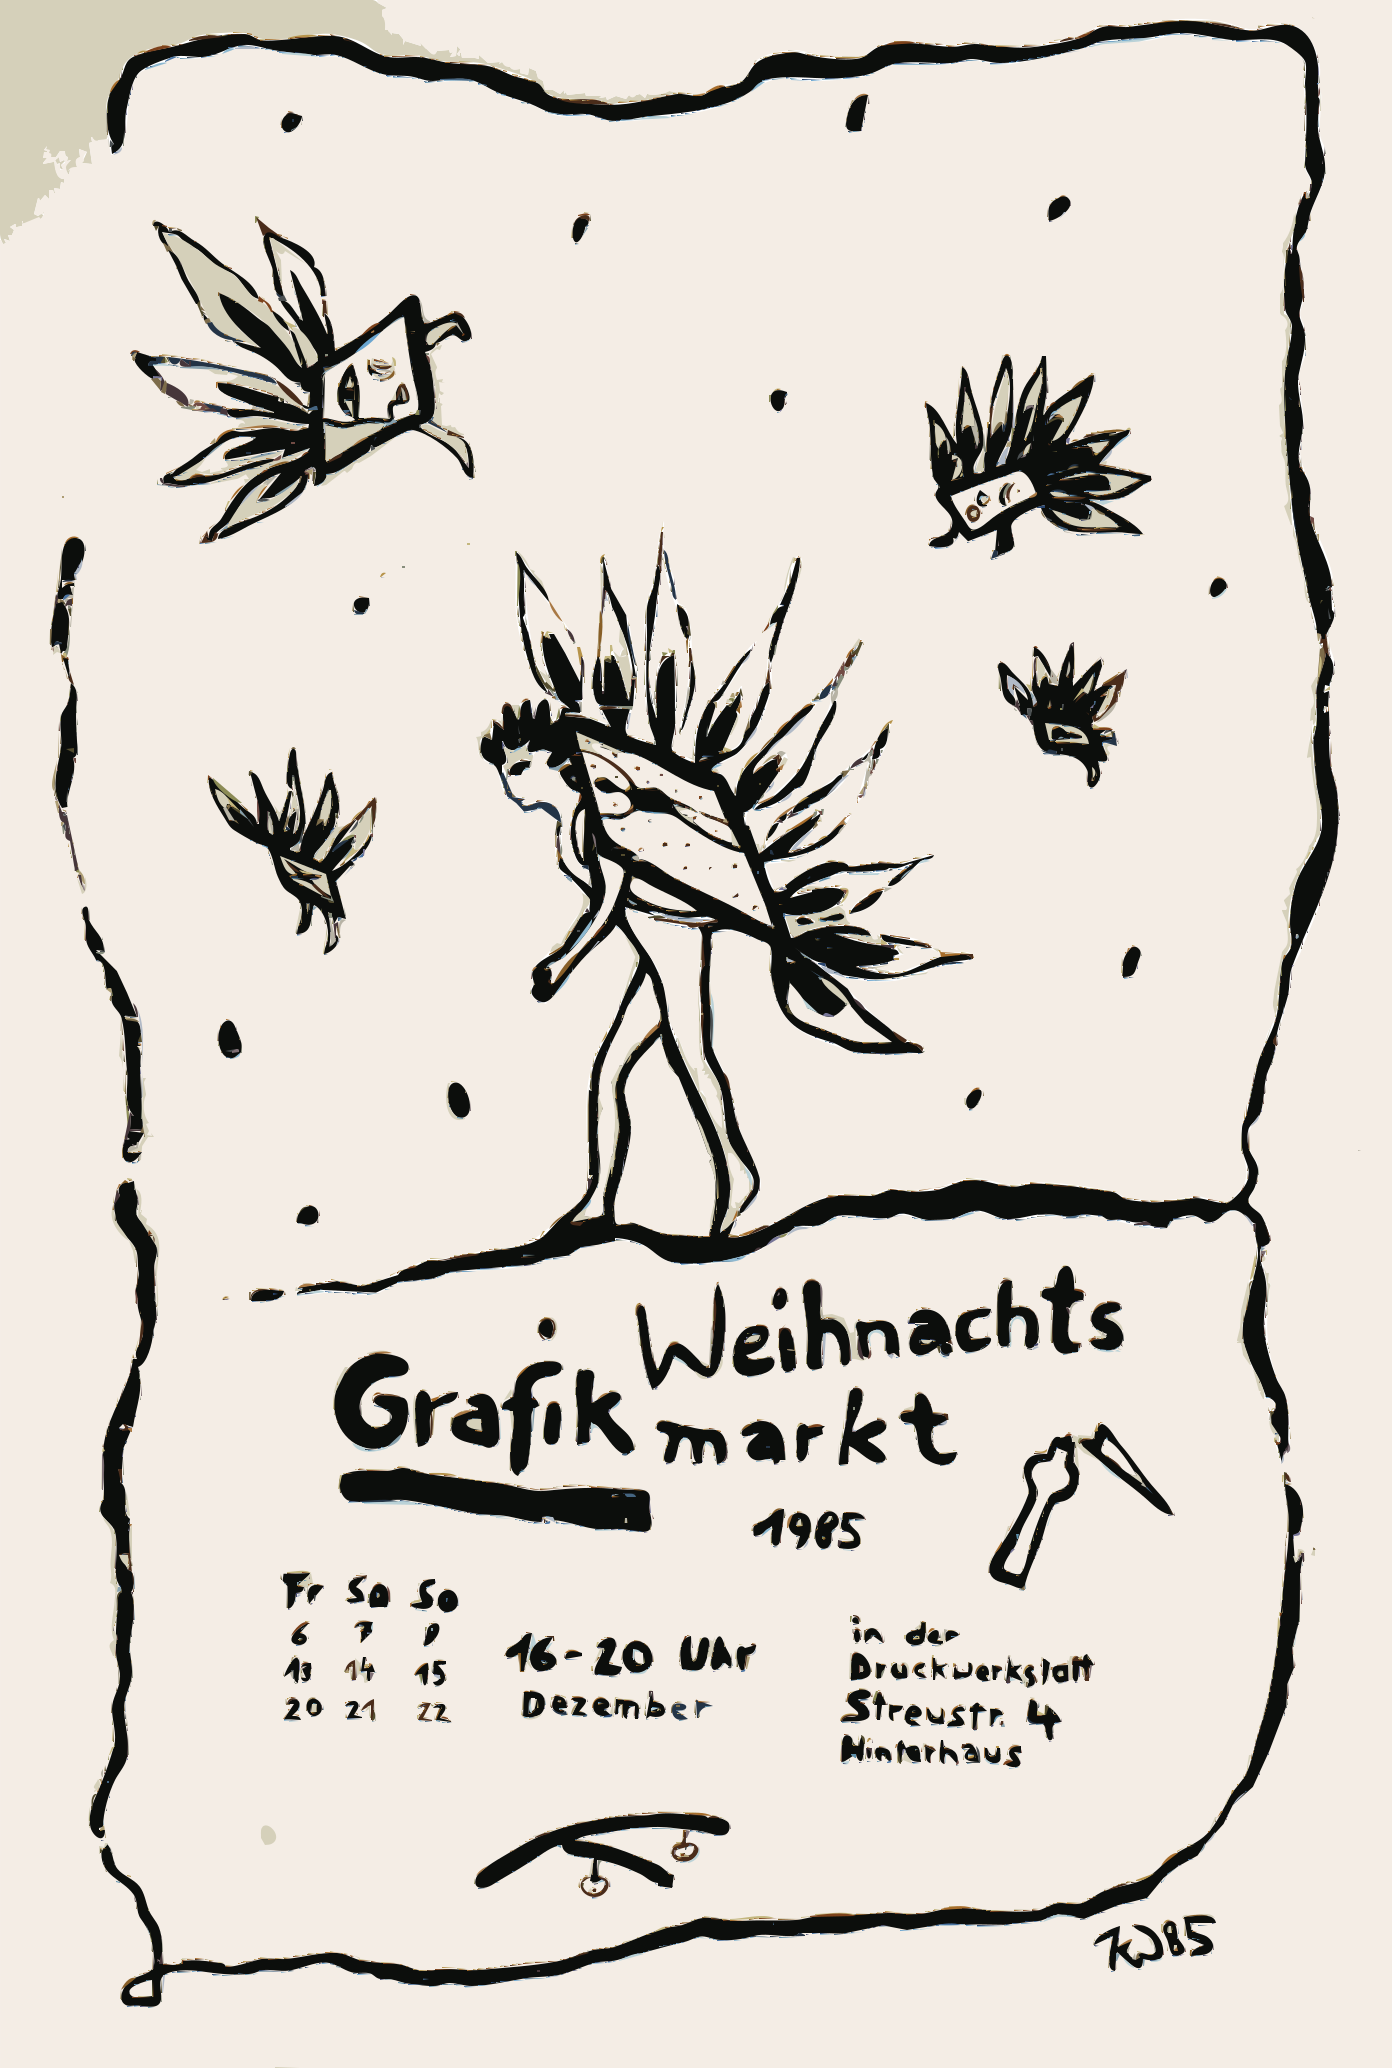 Grafik Weihnachts
markt
1985
Fr Sa So
6 7 8
13 14 15
20 21 22
16-20 Uhr
Dezember
in der
Druckwerkstatt
Streustr. 4
Hinterhaus
KW85